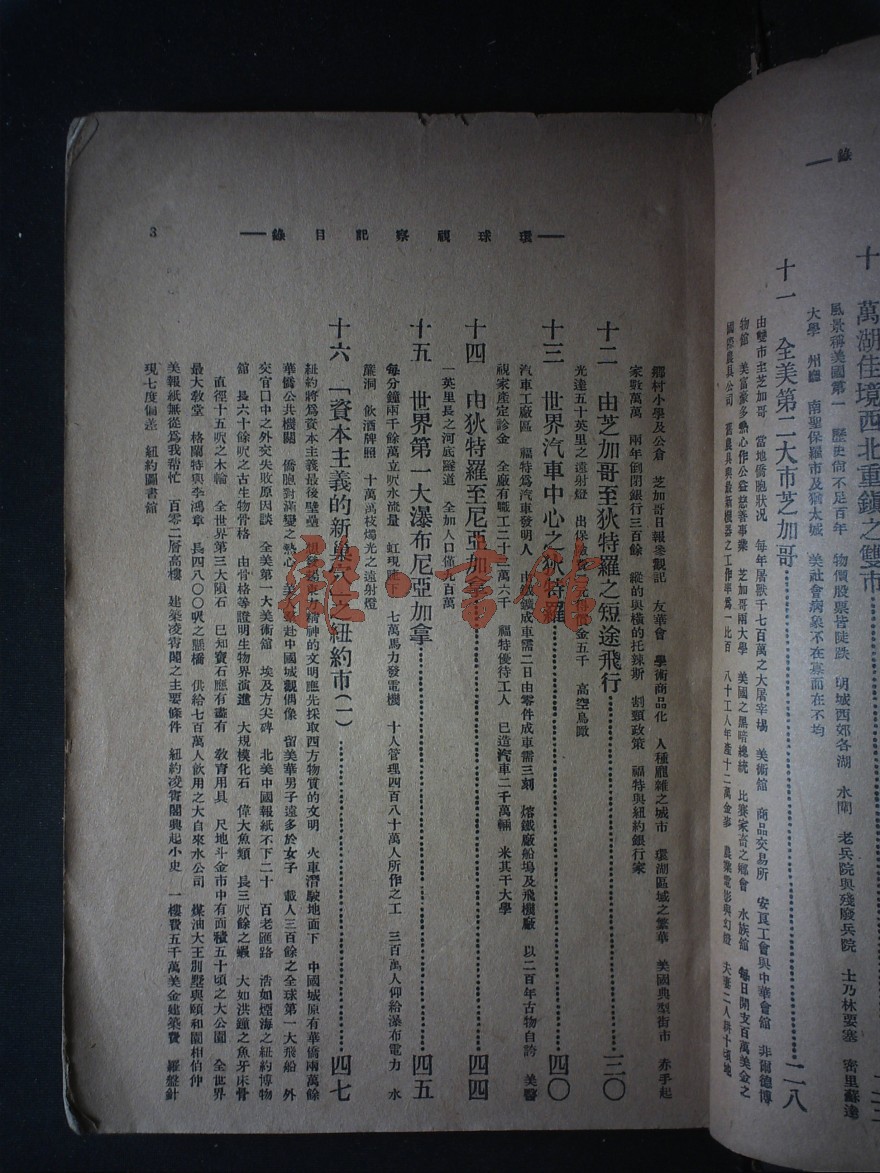 錄
十　萬湖佳境西北重鎮之雙市
風景稱美國第一　歷史尙不足百年　物價股票皆陡跌　明城西郊各湖　水閘　老兵院與殘廢兵院　士乃林要塞　密里蘇達
大學　州廳　南聖保羅市及猶太城　美社會病象不在寡而在不均
十一　全美第二大市芝加哥……二八
由雙市至芝加哥　當地僑胞狀况　每年屠獸千七百萬之大屠宰場　美術館　商品交易所　安良工會與中華會館　非爾德博
物館　美富豪多熱心作公益慈善事業　芝加哥兩大學　美國之黑暗總統　比賽家畜之鄉會　水族館　每日開支百萬美金之
國際農具公司　舊農具與最新機器之工作率爲一比百　八十工人年產十二萬金麥　農業電影與幻燈　夫妻二人耕十頃地
環球視察記目錄
3
鄉村小學及公倉　芝加哥日報參觀記　友華會　學術商品化　人種龐雜之城市　環湖區域之繁華　美國典型街市　赤手起
家數萬萬　兩年倒閉銀行三百餘　縱的與橫的托辣斯　割頸政策　福特與紐約銀行家
十二　由芝加哥至狄特羅之短途飛行……三〇
光達五十英里之遠射燈　出保險費　金五千　高空鳥瞰
十三　世界汽車中心之狄特羅……四〇
汽車工廠區　福特爲汽車發明人　由鐵鑛成車需二日由零件成車需三刻　熔鐵廠船塢及飛機廠　以二百年古物自誇　美醫
視家產定診金　全廠有職工二十二萬六千　福特優待工人　已造汽車二千萬輛　米其干大學
十四　由狄特羅至尼亞加拿……四四
一英里長之河底隧道　全加人口僅九百萬
十五　世界第一大瀑布尼亞加拿……四五
每分鐘兩千餘萬立呎水流量　虹現陛下　七萬馬力發電機　十人管理四百八十萬人所作之工　三百萬人仰給瀑布電力　水
簾洞　飲酒牌照　十萬萬枝燭光之遠射燈
十六　「資本主義的新巢穴」之紐約市(一)……四七
紐約將爲資本主義最後壁壘　想發揚東方精神的文明應先採取西方物質的文明　火車潛駛地面下　中國城原有華僑兩萬餘
華僑公共機關　僑胞對滿變之熱心　美人羣赴中國城觀偶像　留美華男子遠多於女子　載人三百餘之全球第一大飛船　外
交官口中之外交失敗原因談　全美第一大美術館　埃及方尖碑　北美中國報紙不下二十　百老匯路　浩如煙海之紐約博物
館　長六十餘呎之古生物骨格　由骨格等證明生物界演進　大規模化石　偉大魚類　長三呎餘之蝦　大如洪鐘之魚牙床骨
直徑十五呎之木輪　全世界第三大隕石　已知寶石應有盡有　敎育用具　尺地斗金市中有面積五十頃之大公園　全世界
最大敎堂　格蘭特與李鴻章　長四八〇〇呎之懸橋　供給七百萬人飲用之大自來水公司　煤油大王別墅與頤和園相伯仲
美報紙無從爲我幫忙　百零二層高樓　建築凌霄閣之主要條件　紐約凌霄閣興起小史　一樓費五千萬美金建築費　羅盤針
現七度偏差　紐約圖書館